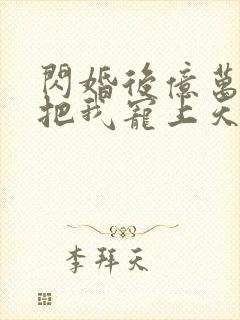 閃婚後億萬
把我寵上天
李拜天